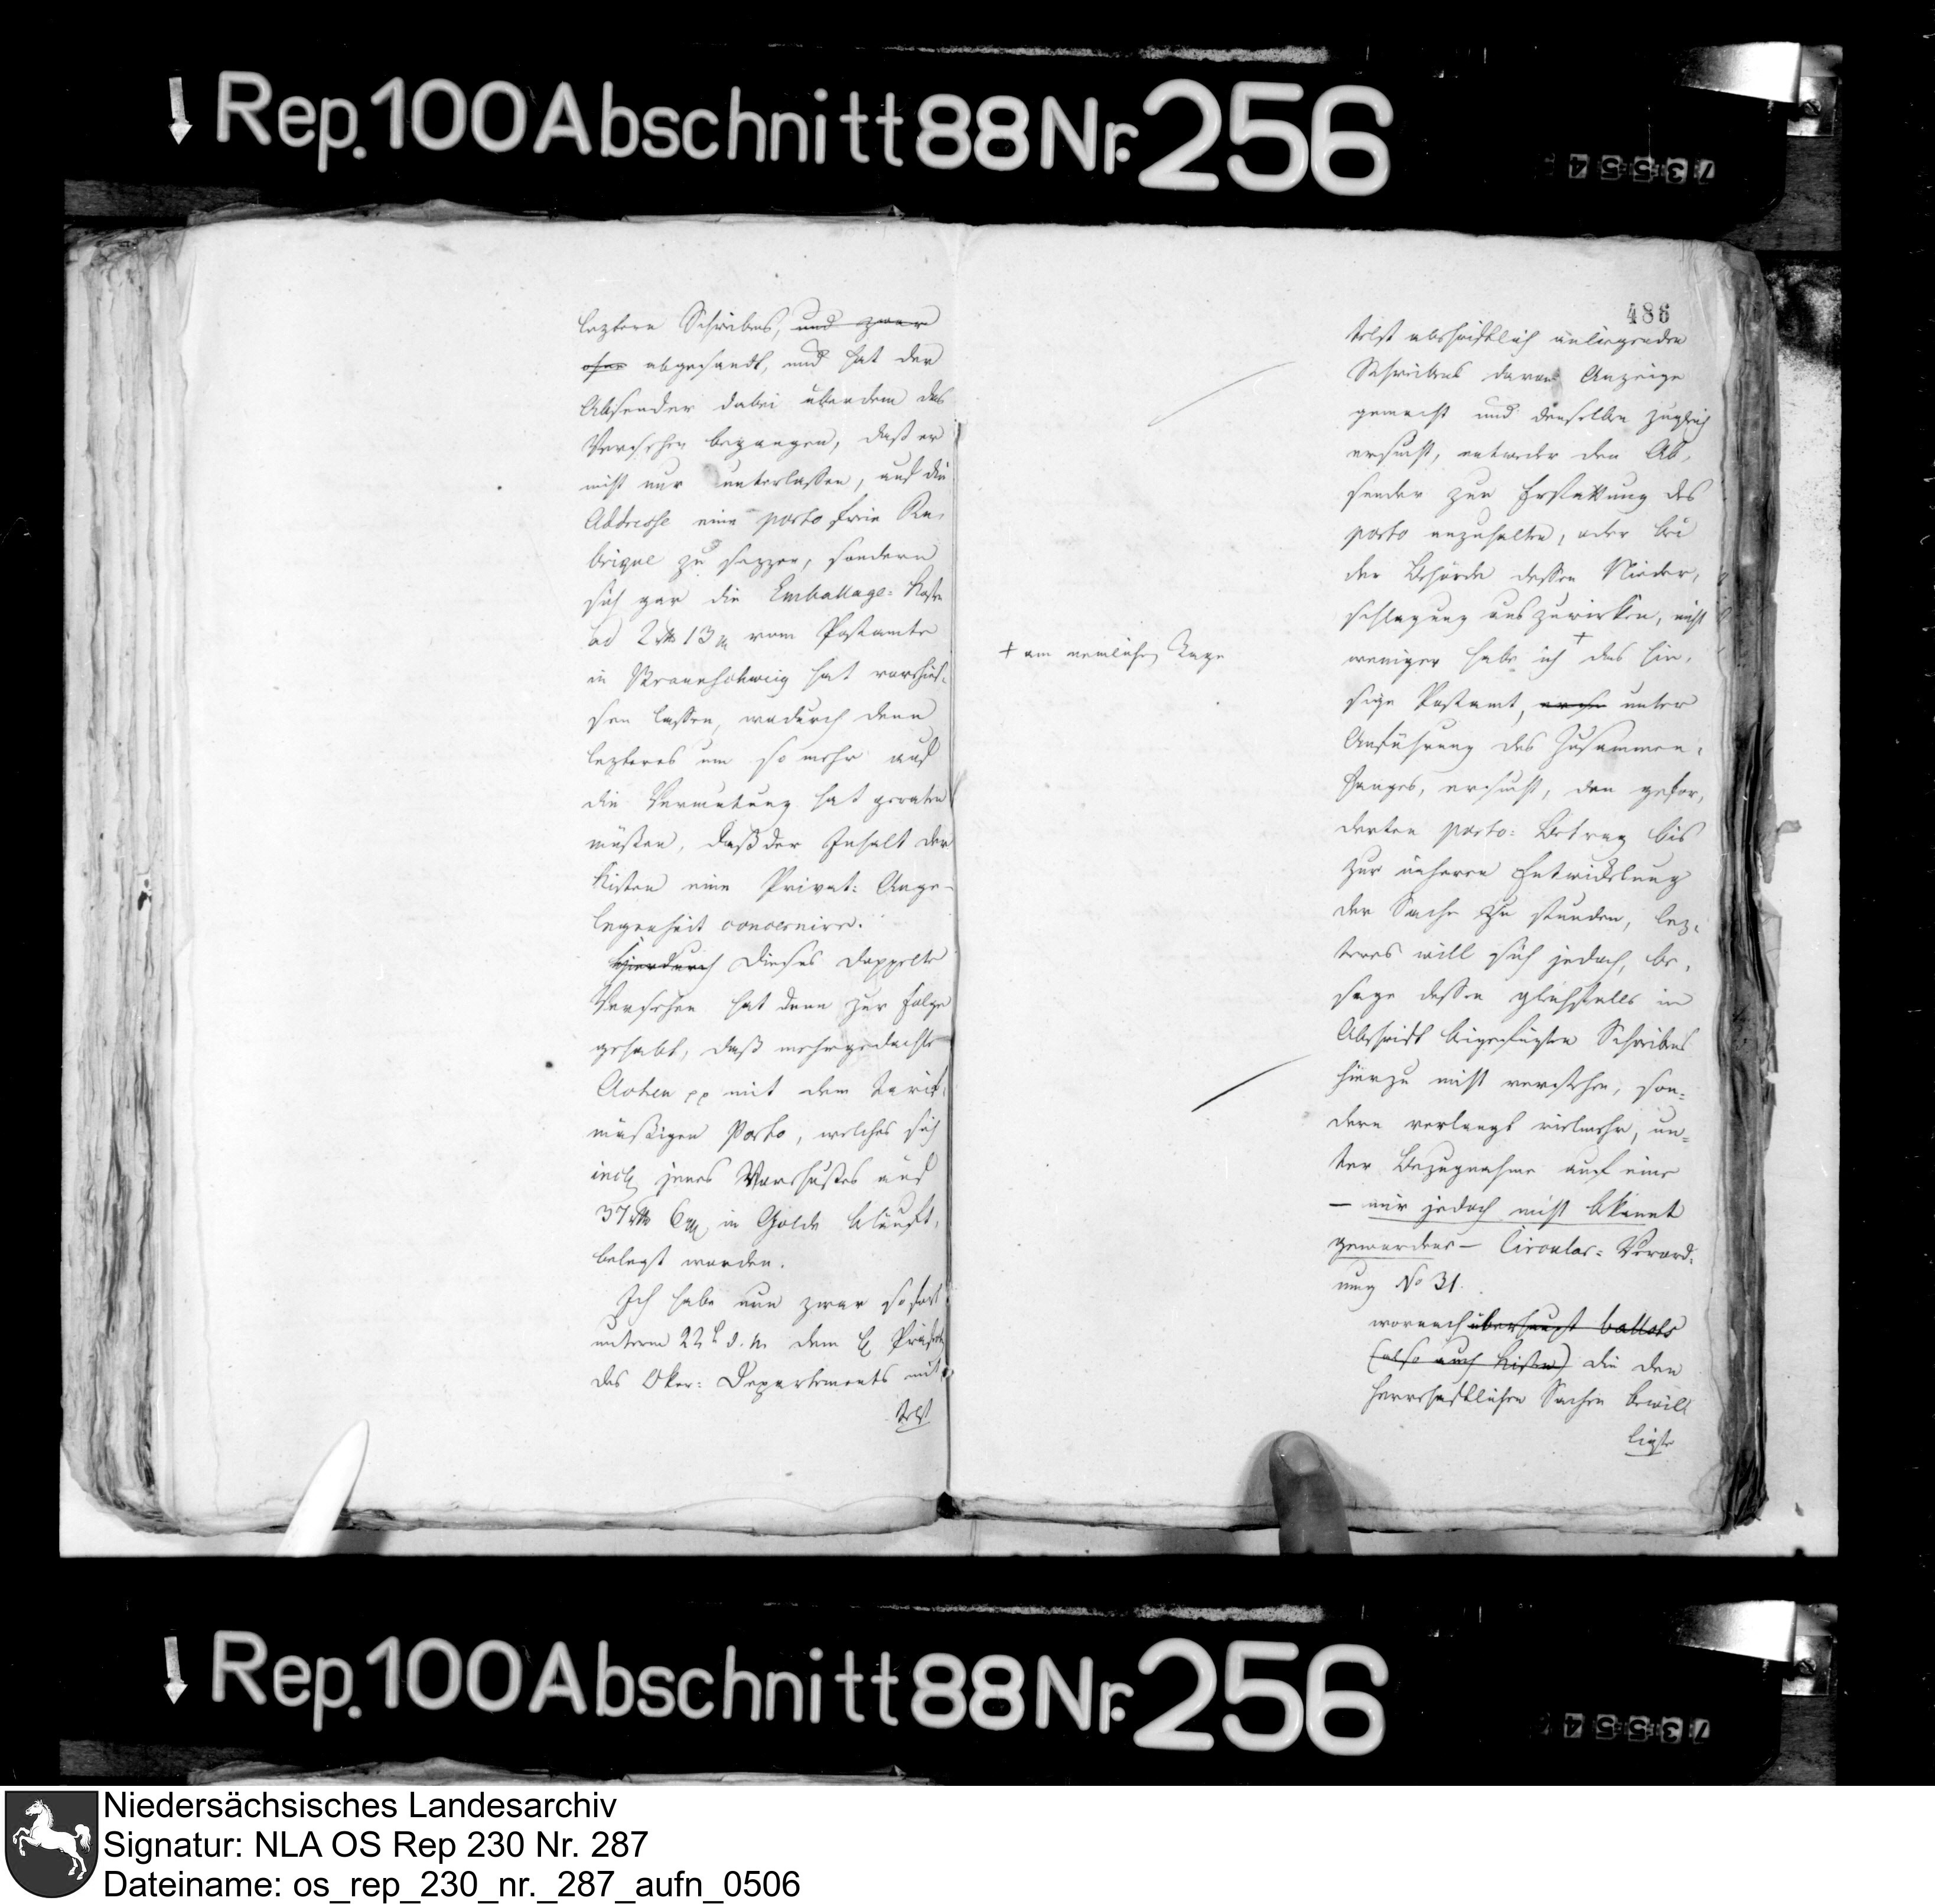 Rep. 100 Abschnitt 88 Nr. 256
73554
leztern Schreibens, und zwar
ohne abgesandt, und hat der
Absender dabei überdem das
Versehen begangen, daß er
nicht nur unterlassen, auf die
Addresse eine porto freie Ru,
brique zu sezzen, sondern
sich gar die Emballage: Kosten
ad 2 rth 13 vom Postamte
in Braunschweig hat vorschies,
sen lassen, wodurch denn
lezteres um so mehr auf
die Vermutung hat geraten
müßen, daß der Inhalt der
Kisten eine Privat: Ange-
legenheit concernire.
Hierdurch Dieses doppelte
Versehen hat denn zur Folge
gehabt, daß mehrgedachte
Acten pp mit dem tarif,
mäßigen Porto, welches sich
incl jenes Vorschußes auf
37 rth 6 in Golde beläuft,
belegt worden.
Ich habe nun zwar sofort
unterm 22t d. M. dem H Präfekten
des Oker: Departements mit,
telst
486
telst abschriftlich anliegenden
Schreibens davon Anzeige
gemacht und denselben zugleich
ersucht, entweder den Ab,
sender zur Erstattung des
porto anzuhalten, oder bei
der Behörde dessen Nieder,
schlagung auszuwirken, nicht
weniger habe ich + das hie,
sige Postamt, unter
Anführung des Zusammen,
hanges, ersucht, den gefor,
derten porto: Betrag bis
zur näheren Entwickelung
der Sache zu stunden, lez,
teres will sich jedoch, be,
sage dessen gleichfalls in
Abschrift beigefügten Schreibens
hierzu nicht verstehen, son,
dern verlangt vielmehr, un,
ter Bezugnahme auf eine
– mir jedoch nicht bekannt
gewordene – Circular: Verord,
nung No 31.
wornach überhaupt ballots
(also auch Kisten) die den
herrschaftlichen Sachen bewil
ligte
+ am nemlichen Tage
Rep. 100 Abschnitt 88 Nr. 256
73554
Niedersächsisches Landesarchiv
Signatur: NLA OS Rep 230 Nr. 287
Dateiname: os_rep_230_nr._287_aufn_0506